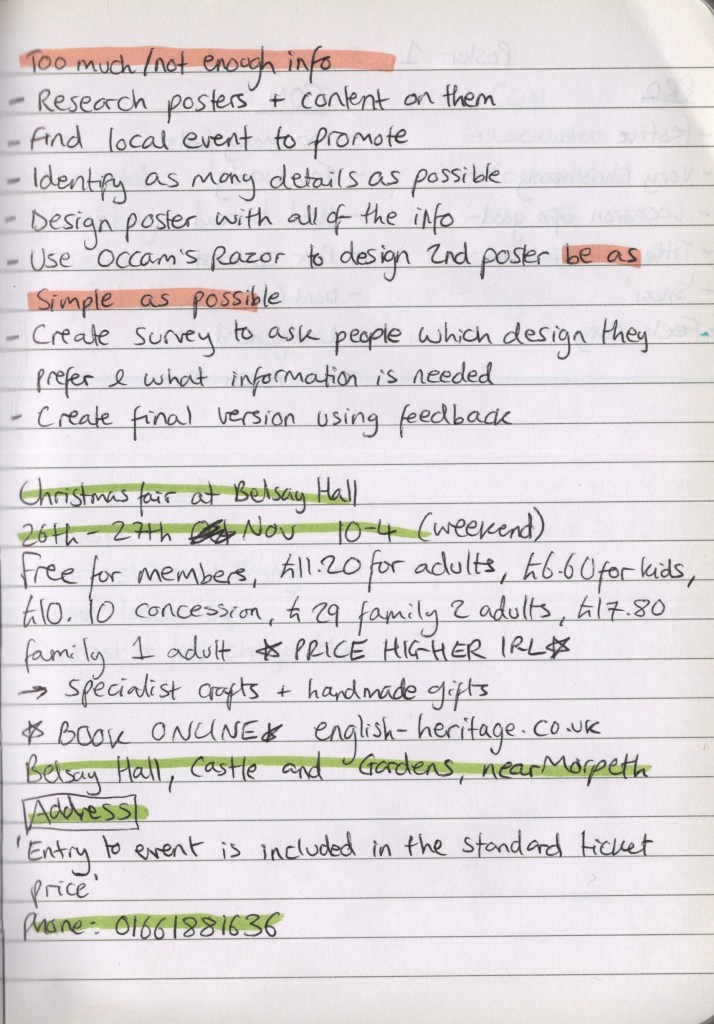 Too much/not enough info
- Research posters + content on them
- Find local event to promote
- Identify as many details as possible
- Design poster with all of the info
- Use Occam's Razor to design 2nd poster be as
simple as possible
- Create survey to ask people which design they
prefer & what information is needed
- Create final version using feedback
Christmas fair at Belsay Hall
26th - 27th Nov 10-4 (weekend)
Free for members, £11.20 for adults, £6.60 for kids,
£10.10 concession, £29 family 2 adults, £17.80
family 1 adult * PRICE HIGHER IRL *
→ specialist crafts + handmade gifts
* BOOK ONLINE * english-heritage.co.uk
Belsay Hall, Castle and Gardens, near Morpeth
Address
'Entry to event is included in the standard ticket
price'
Phone: 01661881636